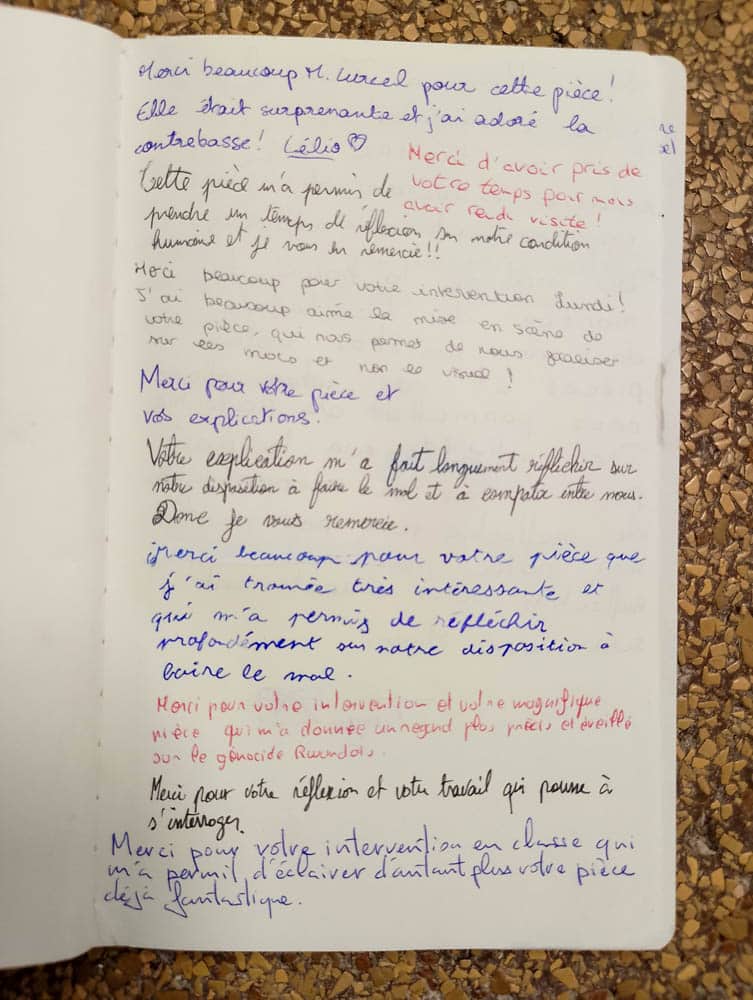 Merci beaucoup M. Lurcel pour cette pièce !
Elle était surprenante et j'ai adoré la
contrebasse ! Célio ♡
Merci d'avoir pris de
votre temps pour nous
avoir rendu visite !
Cette pièce m'a permis de
prendre un temps de réflexion sur notre condition
humaine et je vous en remercie !!
Merci beaucoup pour votre intervention Lundi !
J'ai beaucoup aimée la mise en scène de
votre pièce, qui nous permet de nous focaliser
sur les mots et non le visuel !
Merci pour votre pièce et
vos explications.
Votre explication m'a fait longuement réflichir sur
notre disposition à faire le mal et à compatir entre nous.
Donc je vous remercie.
Merci beaucoup pour votre pièce que
j'ai trouvée très intéressante et
qui m'a permis de réfléchir
profondément sur notre disposition à
faire le mal.
Merci pour votre intervention et votre magnifique
pièce qui m'a donnée un regard plus précis et éveillé
sur le génocide Rwandais.
Merci pour votre réflexion et votre travail qui pousse à
s'interroger.
Merci pour votre intervention en classe qui
m'a permit d'éclairer d'autant plus votre pièce
déjà fantastique.